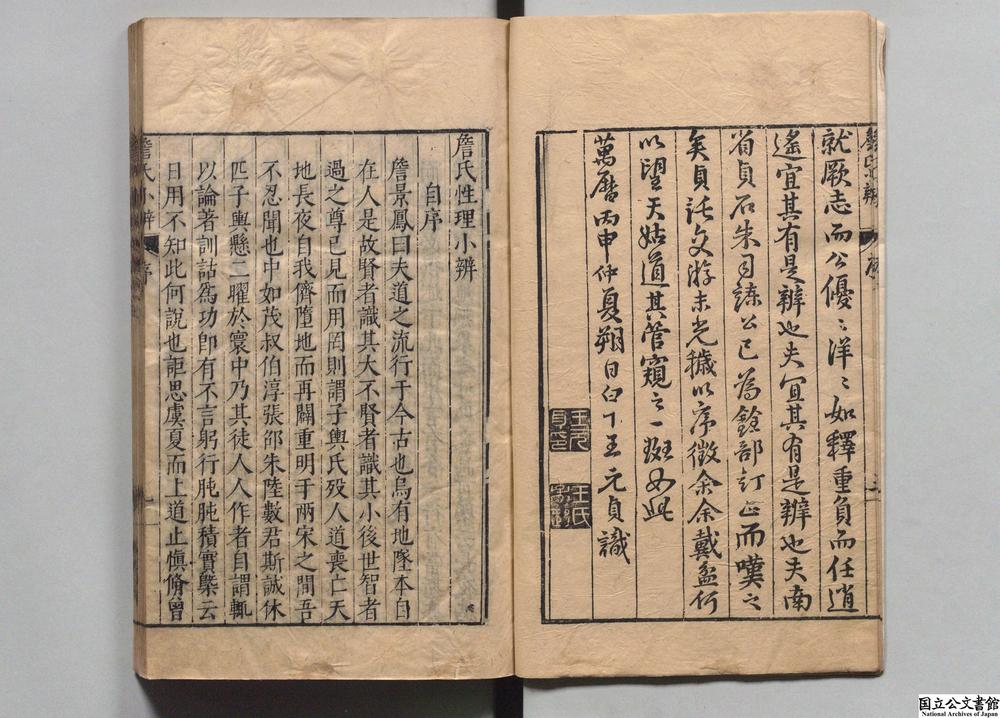 就厥志而公優〻洋〻如釋重負而任逍
遙宜其有是辨也夫宜其有是辨也夫南
省貞石朱司諫公已為銓部訂正而嘆之
矣貞託交游末光穢以序徵余余戴盆何
以望天姑道其管窺之一斑如此
萬曆丙申仲夏朔日白下王元貞識
王元貞印
王氏
詹氏性理小辨
自序
詹景鳳曰夫道之流行于今古也烏有地墜本自
在人是故賢者識其大不賢者識其小後世智者
過之尊已見而用罔則謂子輿氏歿人道喪亡天
地長夜自我儕墮地而再闢重明于兩宋之間吾
不忍聞也中如茂叔伯淳張邵朱陸數君斯誠休
匹子輿懸二曜於寰中乃其徒人人作者自謂輒
以論著訓詁爲功即有不言躬行肫肫積實槩云
日用不知此何說也詎思虞夏而上道止愼脩曾
詹氏小辨
序
一
国立公文書館
National Archives of Japan